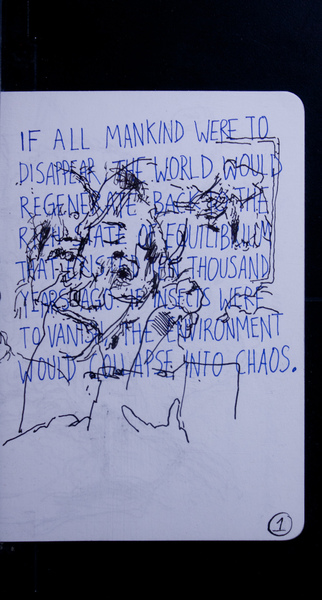 IF ALL MANKIND WERE TO
DISAPPEAR, THE WORLD WOULD
REGENERATE BACK TO THE
RICH STATE OF EQUILIBRIUM
THAT EXISTED TEN THOUSAND
YEARS AGO. IF INSECTS WERE
TO VANISH, THE ENVIRONMENT
WOULD COLLAPSE INTO CHAOS.
1